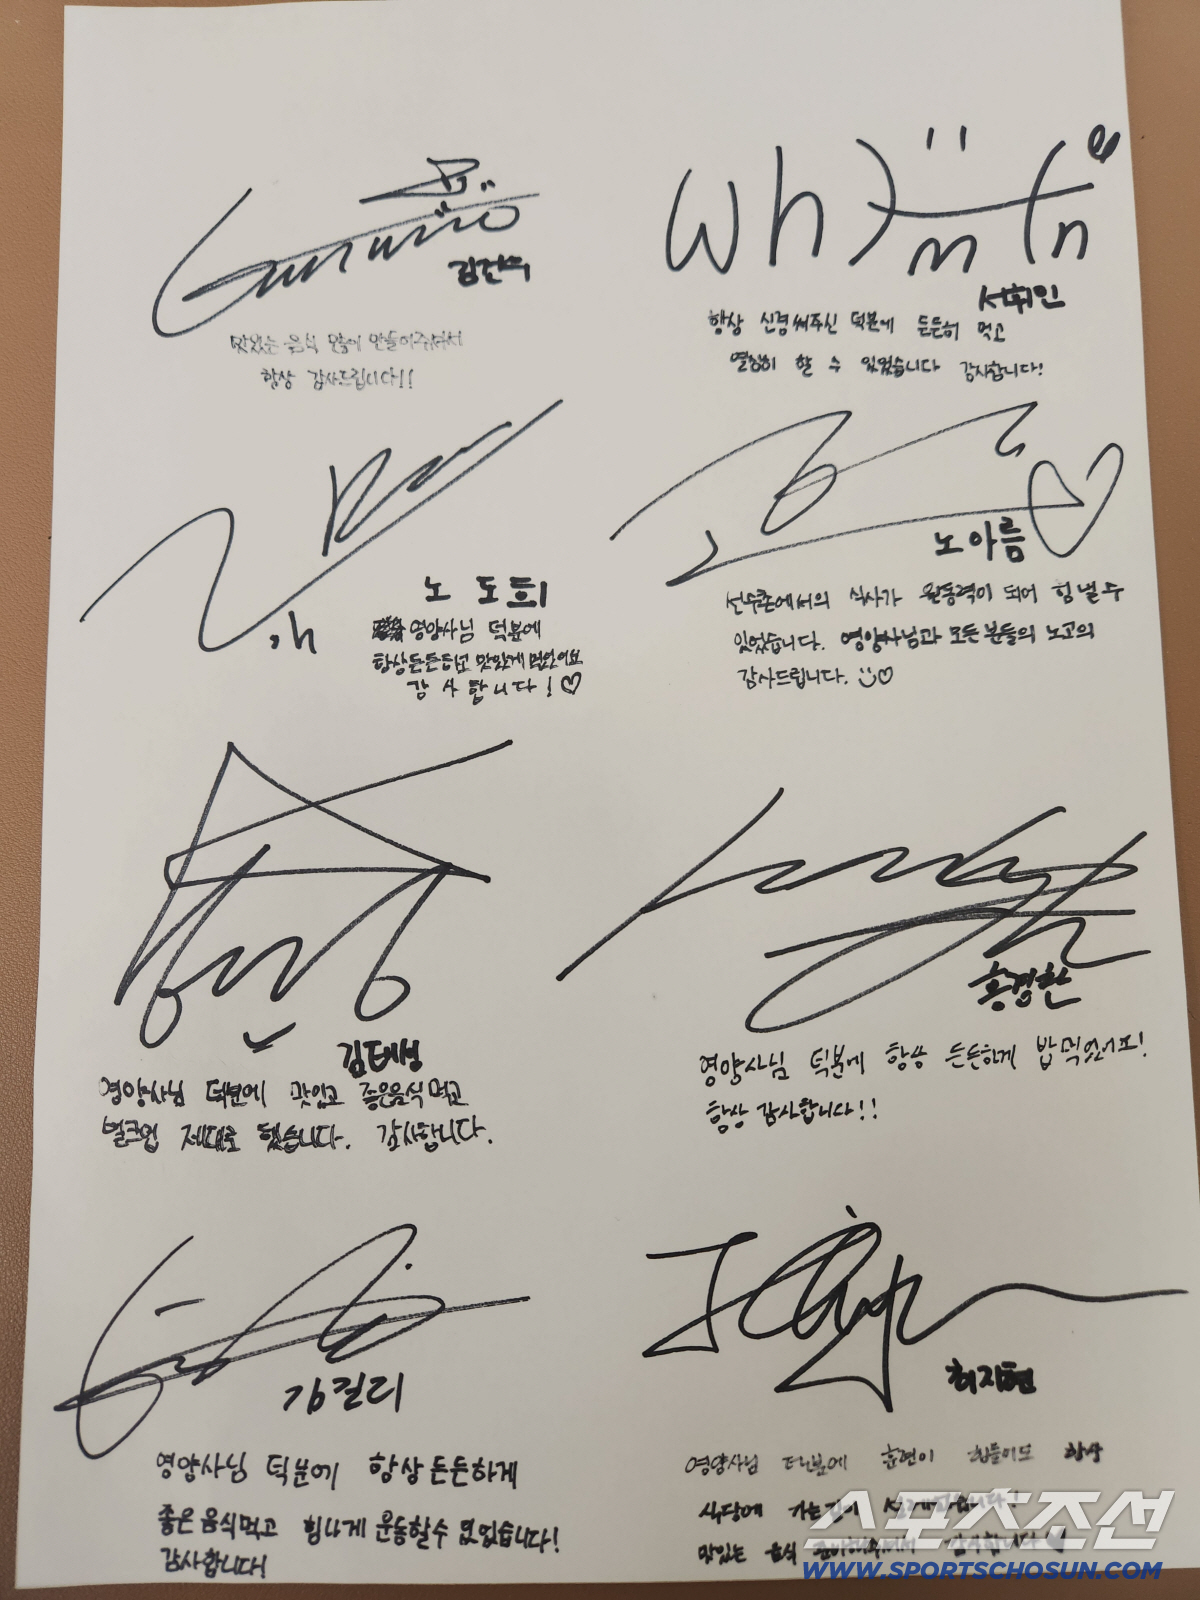 김건우
맛있는 음식 많이 만들어주셔서
항상 감사드립니다!!
서휘민
항상 신경써주신 덕분에 든든히 먹고
열심히 할 수 있었습니다 감사합니다!
노도희
영양사님 덕분에
항상 든든하고 맛있게 먹었어요
감사합니다!♡
노아름
선수촌에서의 식사가 원동력이 되어 힘낼 수
있었습니다. 영양사님과 모든 분들의 노고의
감사드립니다.
김태성
영양사님 덕분에 맛있고 좋은음식 먹고
벌크업 제대로 했습니다. 감사합니다.
홍경환
영양사님 덕분에 항상 든든하게 밥 먹었어요!
항상 감사합니다!!
김길리
영양사님 덕분에 항상 든든하게
좋은 음식먹고 힘나게 운동할수 있었습니다!
감사합니다!
허지현
영양사님 덕분에 훈련이 힘들어도 항상
식당에 가는길이
맛있는 음식 준비해주셔서 감사합니다
스포츠조선
WWW.SPORTSCHOSUN.COM